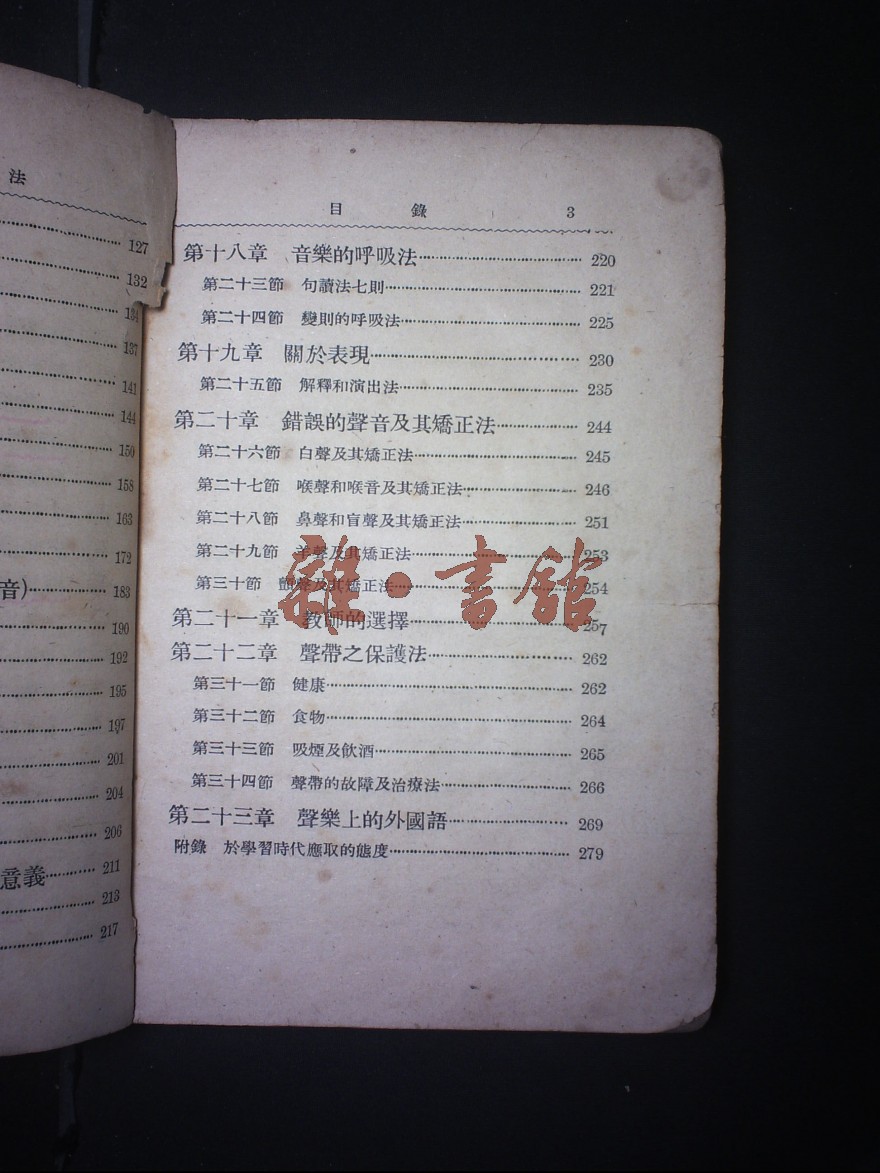 法
127
132
134
137
141
144
150
158
163
172
音)……183
190
192
195
197
201
204
206
意義……211
213
217
目錄 3
第十八章 音樂的呼吸法……220
第二十三節 句讀法七則……221
第二十四節 變則的呼吸法……225
第十九章 關於表現……230
第二十五節 解釋和演出法……235
第二十章 錯誤的聲音及其矯正法……244
第二十六節 白聲及其矯正法……245
第二十七節 喉聲和喉音及其矯正法……246
第二十八節 鼻聲和盲聲及其矯正法……251
第二十九節 羊聲及其矯正法……253
第三十節 顫聲及其矯正法……254
第二十一章 教師的選擇……257
第二十二章 聲帶之保護法……262
第三十一節 健康……262
第三十二節 食物……264
第三十三節 吸煙及飲酒……265
第三十四節 聲帶的故障及治療法……266
第二十三章 聲樂上的外國語……269
附錄 於學習時代應取的態度……279
雜·書舘